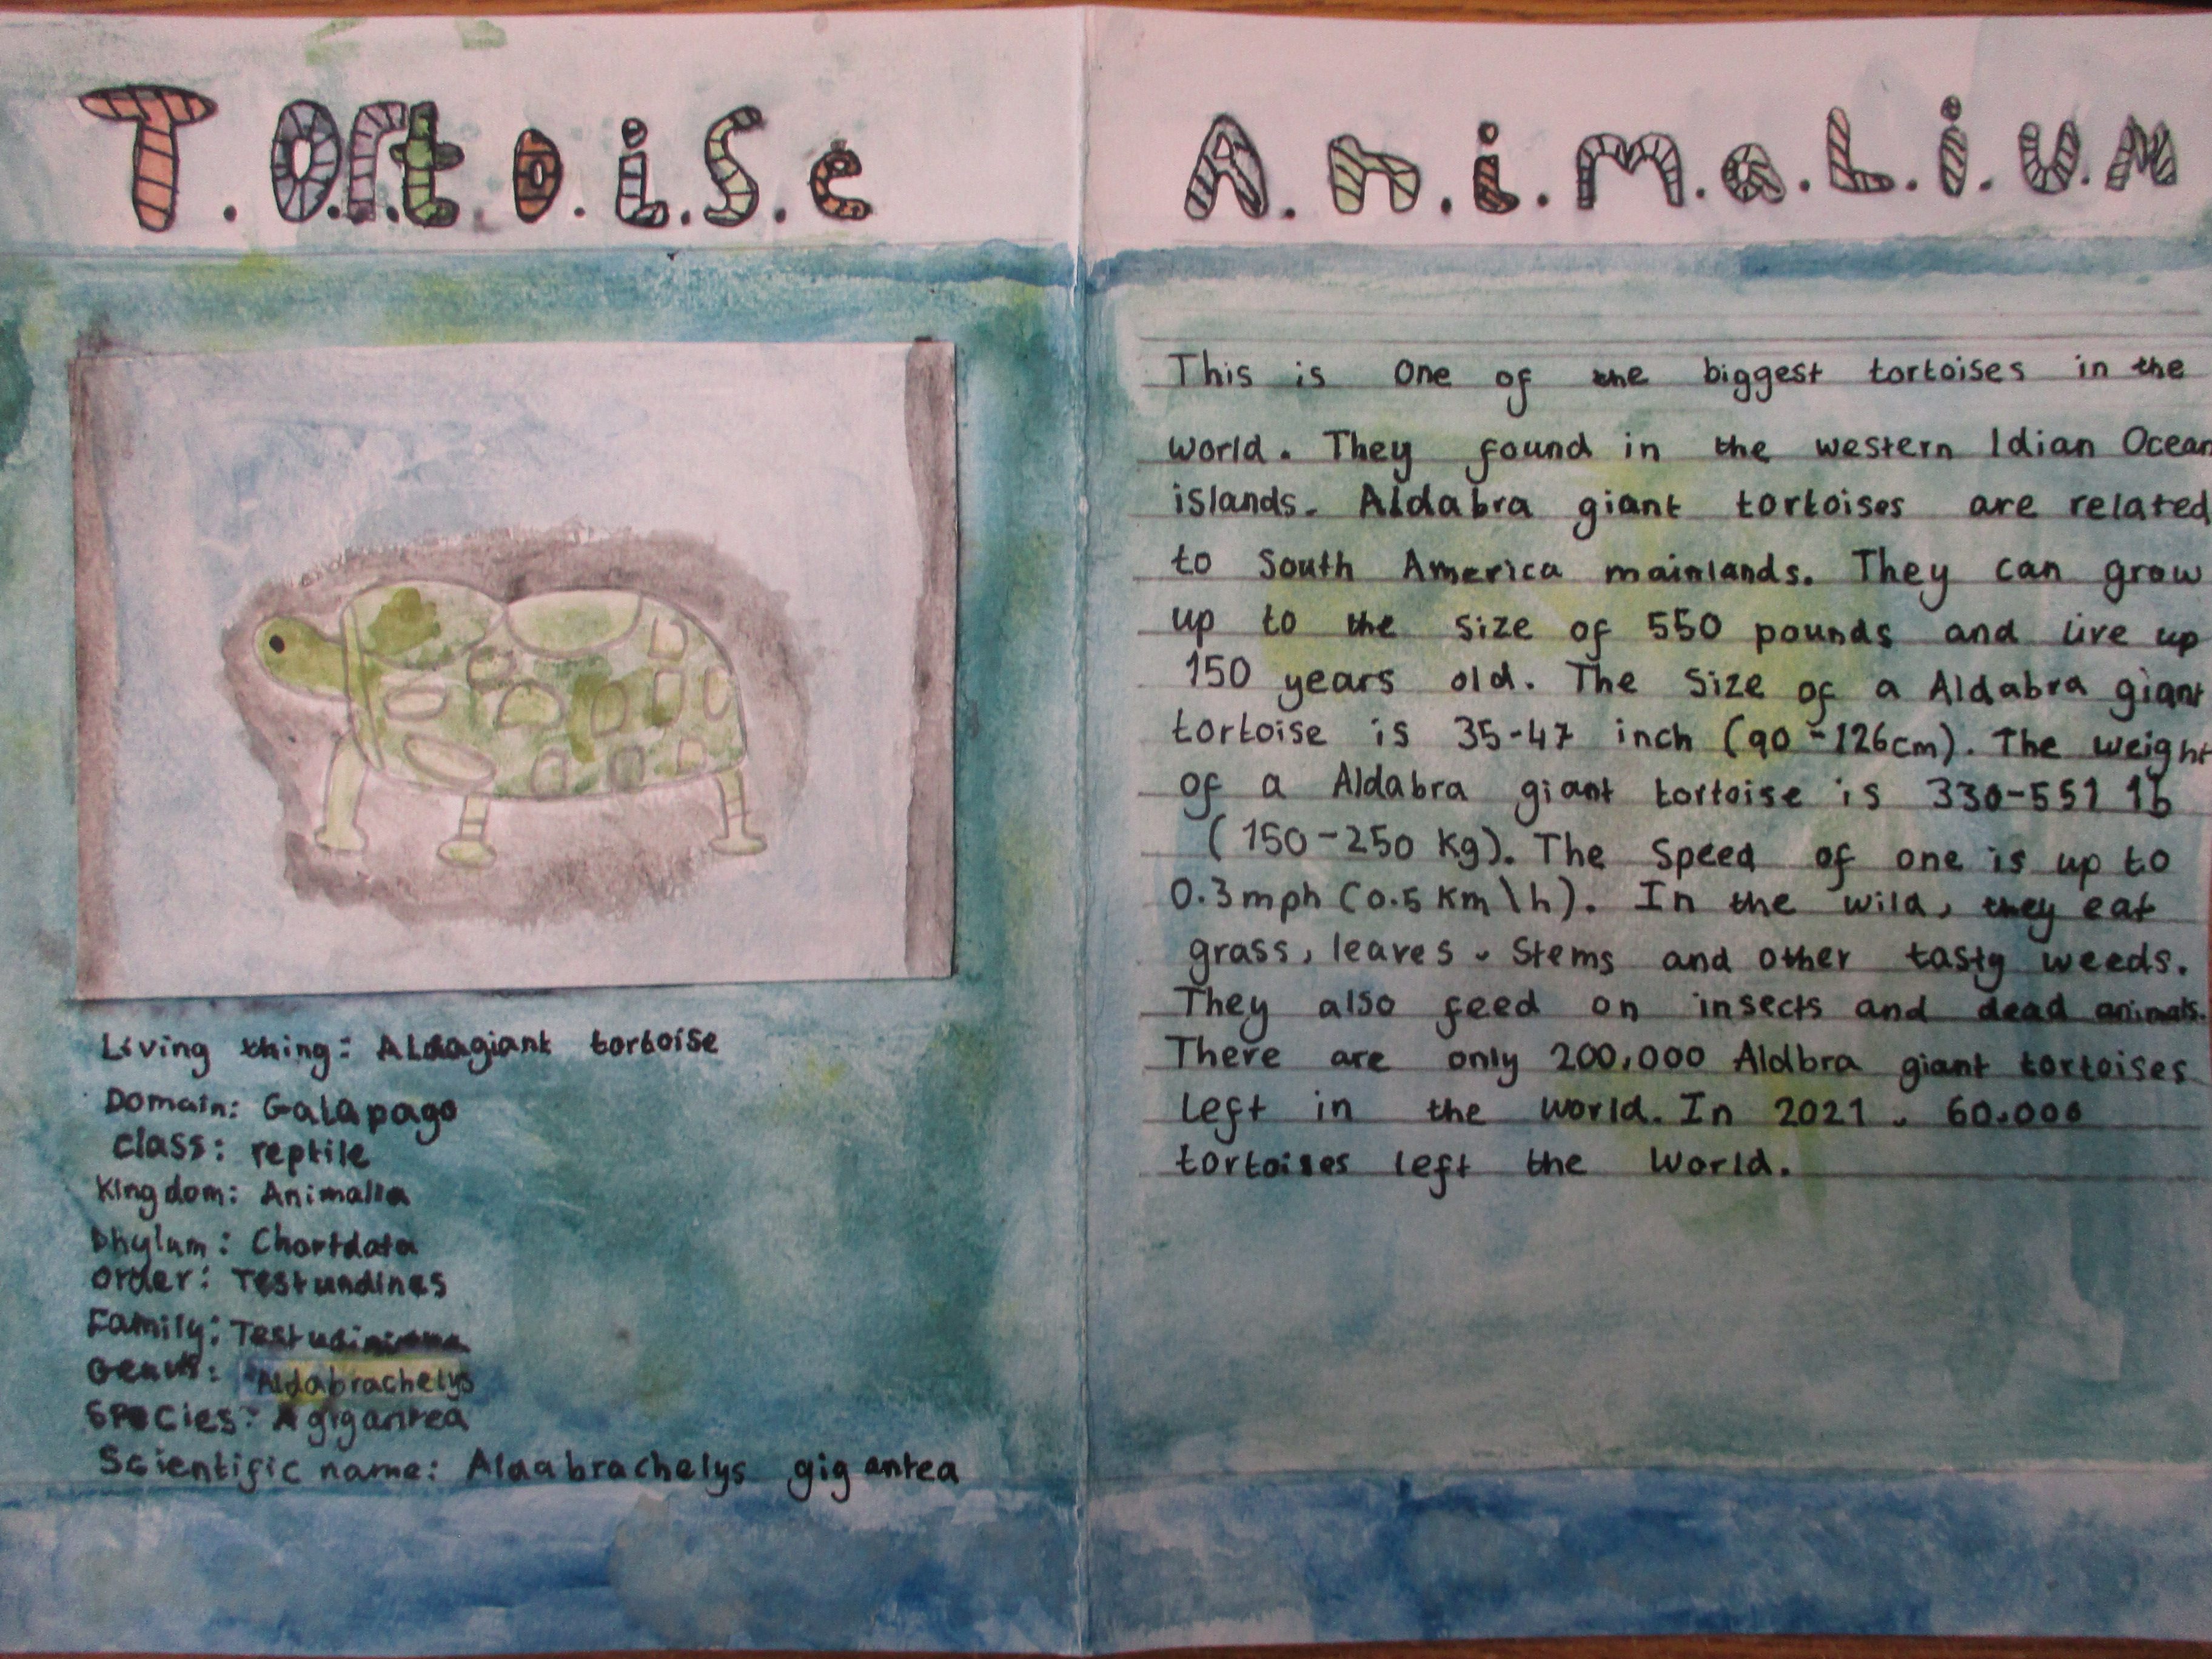 T.Ort.o.i.S.e
A.n.i.m.a.L.i.u.m
Living thing: Aldagiant tortoise
Domain: Galapago
Class: reptile
Kingdom: Animalia
Phylum: Chortdata
Order: Testundines
Family:
Genus: Aldabrachelys
Species: A gigantea
Scientific name: Aldabrachelys gigantea
This is One of the biggest tortoises in the
world. They found in the western Idian Ocean
islands. Aldabra giant tortoises are related
to South America mainlands. They can grow
up to the size of 550 pounds and live up
150 years old. The Size of a Aldabra giant
tortoise is 35-47 inch (90-126cm). The weight
of a Aldabra giant tortoise is 330-551 lb
(150-250 Kg). The Speed of one is up to
0.3mph (0.5 Km\h). In the wild, they eat
grass, leaves. Stems and other tasty weeds.
They also feed on insects and dead animals.
There are only 200,000 Aldbra giant tortoises
left in the world. In 2021, 60.000
tortoises left the World.